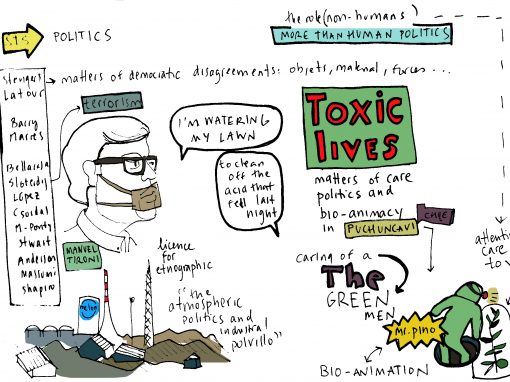 STS POLITICS
the role (non-humans)
MORE THAN HUMAN POLITICS
matters of democratic disagreements: objets, material, forces ...
Stengers
Latour
Barry
Marres
Bellacasa
Sloterdij
López
Csordas
M-Ponty
Stwart
Anderson
Massumi
Shapiro
terrorism
I'M WATERING
MY LAWN
to clean
off the
acid that
fell last
night
MANUEL
TIRONI
licence
for
etnographic
"the
atmospheric
politics and
industrial
polvillo"
TOXIC
lives
matters of care
politics and
bio-animacy
in PUCHUNCAVI
CHILE
caring of a
The
GREEN
MEN
Mr. Pino
BIO-ANIMATION
attentive
care
to